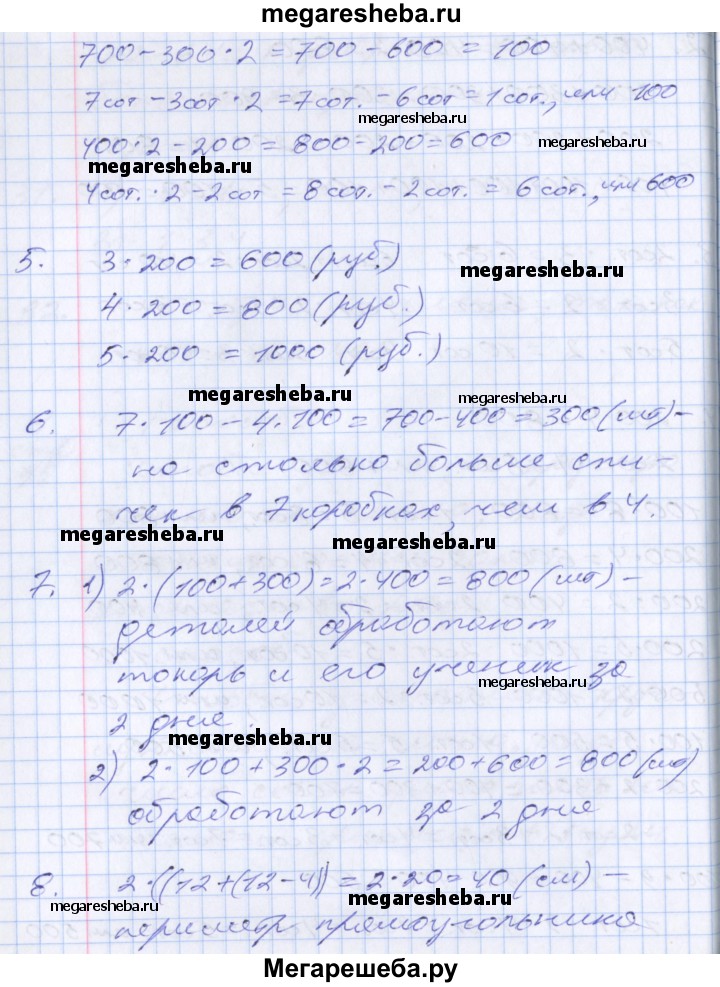 megaresheba.ru
700 - 300 · 2 = 700 - 600 = 100
7 сот - 3 сот · 2 = 7 сот. - 6 сот = 1 сот., или 100
megaresheba.ru
400 · 2 - 200 = 800 - 200 = 600 megaresheba.ru
megaresheba.ru
4 сот. · 2 - 2 сот = 8 сот. - 2 сот. = 6 сот., или 600
5. 3 · 200 = 600 (руб.)
megaresheba.ru
4 · 200 = 800 (руб.)
5 · 200 = 1000 (руб.)
megaresheba.ru megaresheba.ru
6. 7 · 100 - 4 · 100 = 700 - 400 = 300 (шт) -
на столько больше спи-
чек в 7 коробках, чем в 4.
megaresheba.ru megaresheba.ru
7. 1) 2 · (100 + 300) = 2 · 400 = 800 (шт) -
деталей обработают
токарь и его ученик за
megaresheba.ru
2 дня.
megaresheba.ru
2) 2 · 100 + 300 · 2 = 200 + 600 = 800 (шт)
обработают за 2 дня
8. 2 · ((12 + (12 - 4)) = 2 · 20 = 40 (см) -
megaresheba.ru megaresheba.ru
периметр прямоугольника
Мегарешеба.ру